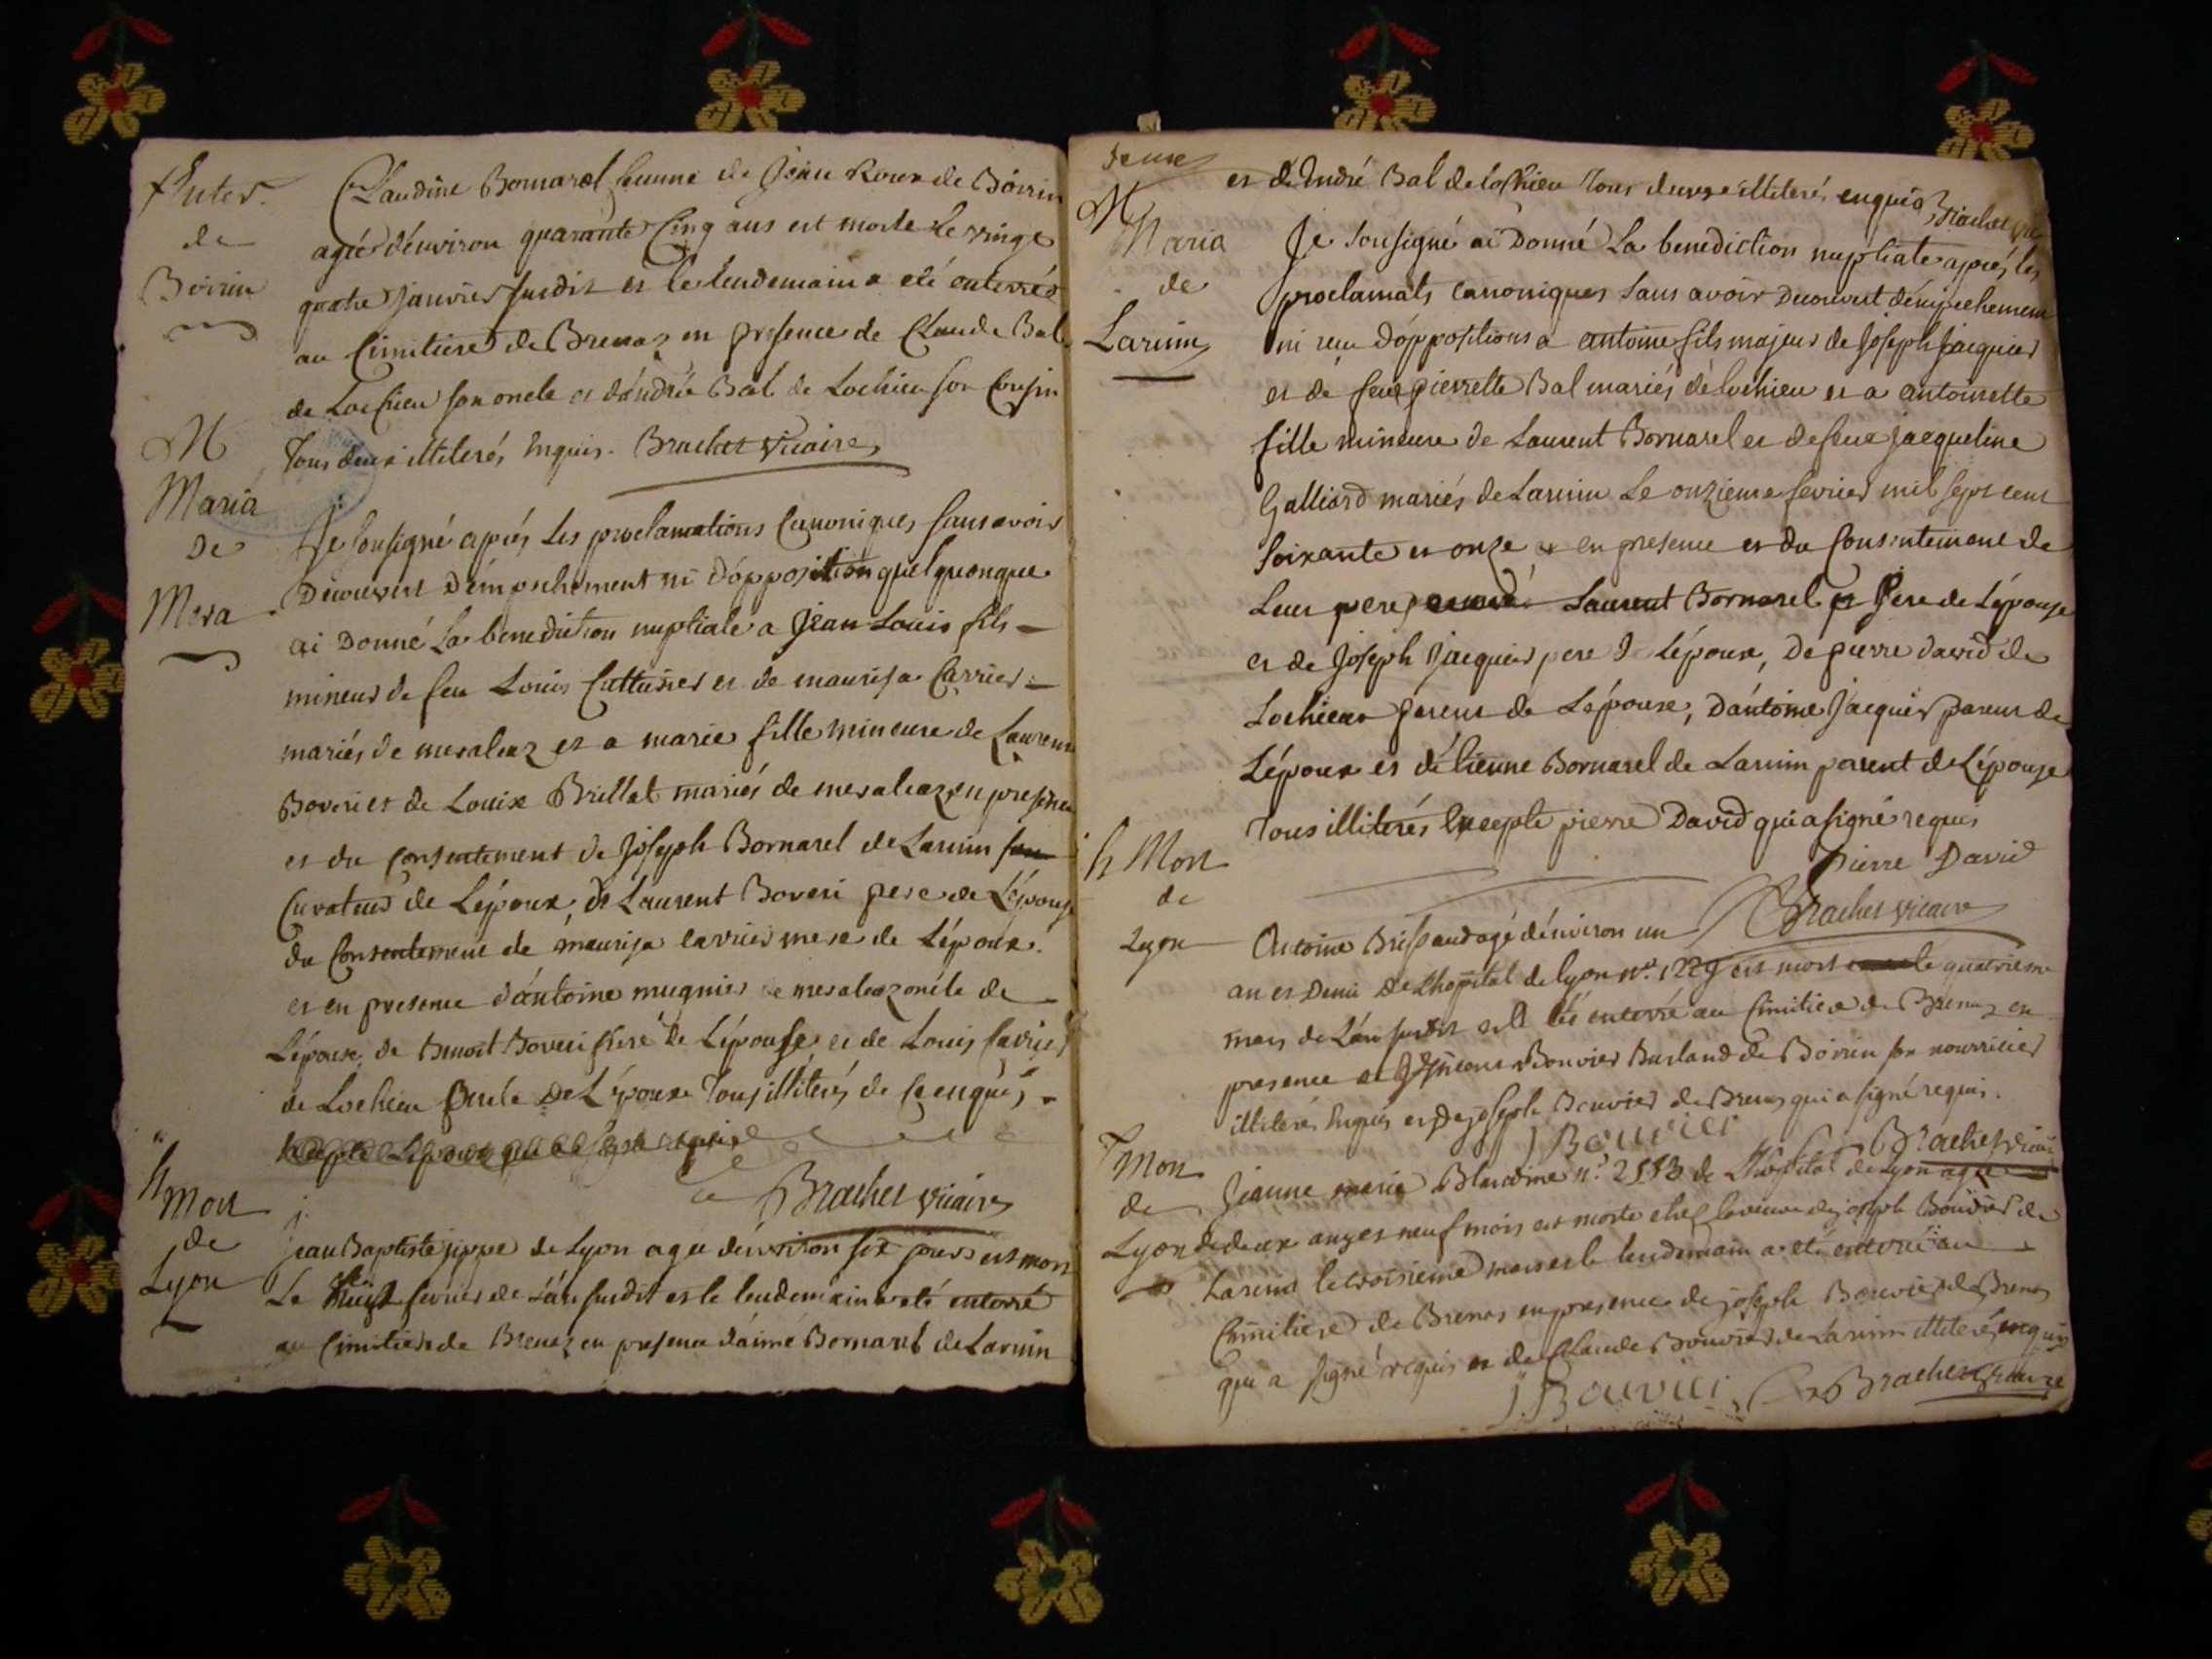 Enter.
de
Boirin
Claudine Bornarel femme de Roux de Boirin
agée d'environ quarante Cinq ans est morte le vingt
quatre janvier susdit et le lendemain a eté enterrée
au Cimitiere de Brenaz en presence de Claude Bal
de Lochieu son oncle et d'andrée Bal de Lochieu son Cousin
Tous deux illiterés enquis. Brachet vicaire
M
Maria
De
Mera
Je sousigné aprés les proclamations Canoniques sans avoir
Decouvert d'empechement ni d'opposition quelquonque
ai Donné La benediction nuptiale a Jean Louis fils
mineur de feu Louis et de maurisa Carrier
mariés de meraleaz et a marie fille mineure de Laurent
Boveri et de Louise Brillat mariés de meraleaz en presence
et du consentement de Joseph Bornarel de Larinin
Curateur de L'époux, de Laurent Boveri pere de L'épouse
du Consentement de maurisa carrier mere de L'époux.
et en presence d'antoine mugnier de meraleaz oncle de
L'époux, de Benoit Boveri frere de L'épouse et de Louis Carrier
de Lochieu oncle De L'époux Tous illiterés de ce enquis
Brachet vicaire
Mort
de
Lyon
jean Baptiste jippe de Lyon agé d'environ six jours est mort
Le huit fevrier de L'an susdit et le lendemain a eté enterré
au Cimitiere de Brenaz en presence d'aimé Bornarel de Larinin
et d'André Bal de lochieu Tous deux illiterés enquis Brachet vic
M
Maria
de
Larinin
Je sousigné ai Donné La benediction nuptiale aprés les
proclamats canoniques sans avoir Decouvert d'empechement
ni reçu d'oppositions a antoine fils majeur de Joseph Jacquier
et de feue pierrette Bal mariés de lochieu et a antoinette
fille mineure de Laurent Bornarel et de feue jacqueline
Galliard mariés de Larinin Le onzieme fevrier mil sept cent
soixante et onze en presence et du Consentement de
Leur pere Laurent Bornarel Pere de L'épouse
et de Joseph Jacquier pere de L'époux, De pierre david de
Lochieu parent de L'époux, D'antoine Jacquier parent de
L'époux et d'étienne Bornarel de Larinin parent de L'épouse
Tous illiterés Excepte pierre David qui a signé requis
Pierre David
Brachet vicaire
Mort
de
Lyon
Antoine Brissaud agé d'environ un
an et Demi De L'hopital de lyon n°. 1229 est mort le quatrieme
mars de L'an susdit et a eté enterré au Cimitiere de Brenaz en
presence de Bouvier Burland de Boirin son nourricier
illiteré Enquis et De joseph Bouvier de Brenaz qui a signé requis.
J Bouvier Brachet vicaire
Mort
de
Lyon
Jeanne marie Blandine n°. 2553 de L'hopital de Lyon agée
de deux ans et neuf mois est morte chez la veuve de joseph Bouvier de
Larinin le troisieme mars et le lendemain a eté enterrée au
Cimitiere de Brenas en presence de joseph Bouvier de Brenas
qui a signé requis et de Claude Bouvier de Larinin illiteré enquis
J. Bouvier Brachet vicaire